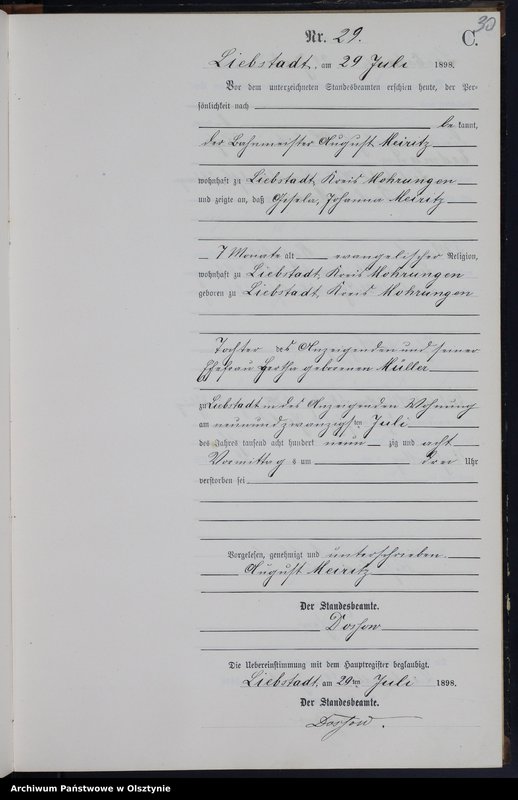 30
Nr. 29.
C.
Liebstadt, am 29 Juli 1898.
Vor dem unterzeichneten Standesbeamten erschien heute, der Per-
sönlichkeit nach
be kannt,
der Bahnmeister August Meiritz
wohnhaft zu Liebstadt, Kreis Mohrungen
und zeigte an, daß Gisela, Johanna Meiritz
7 Monate alt evangelischer Religion,
wohnhaft zu Liebstadt, Kreis Mohrungen
geboren zu Liebstadt, Kreis Mohrungen
Tochter des Anzeigenden und seiner
Ehefrau Hertha geborenen Müller
zu Liebstadt in des Anzeigenden Wohnung
am neunundzwanzigsten Juli
des Jahres tausend acht hundert neun zig und acht
Vormittag s um drei Uhr
verstorben sei
Vorgelesen, genehmigt und unterschrieben.
August Meiritz
Der Standesbeamte.
Die Uebereinstimmung mit dem Hauptregister beglaubigt.
Liebstadt, am 29ten Juli 1898.
Der Standesbeamte.
Archiwum Państwowe w Olsztynie